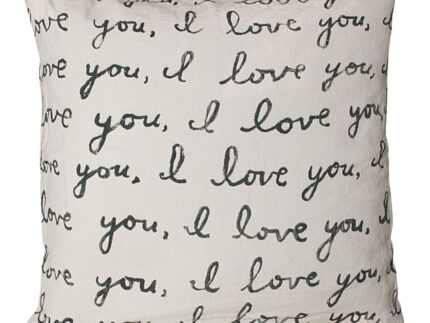 love you, I love you,
love you, I love you, I
love you, I love you, I
love you, I love you, I
love you, I love you,
love you, I love you,
love you, I love you,